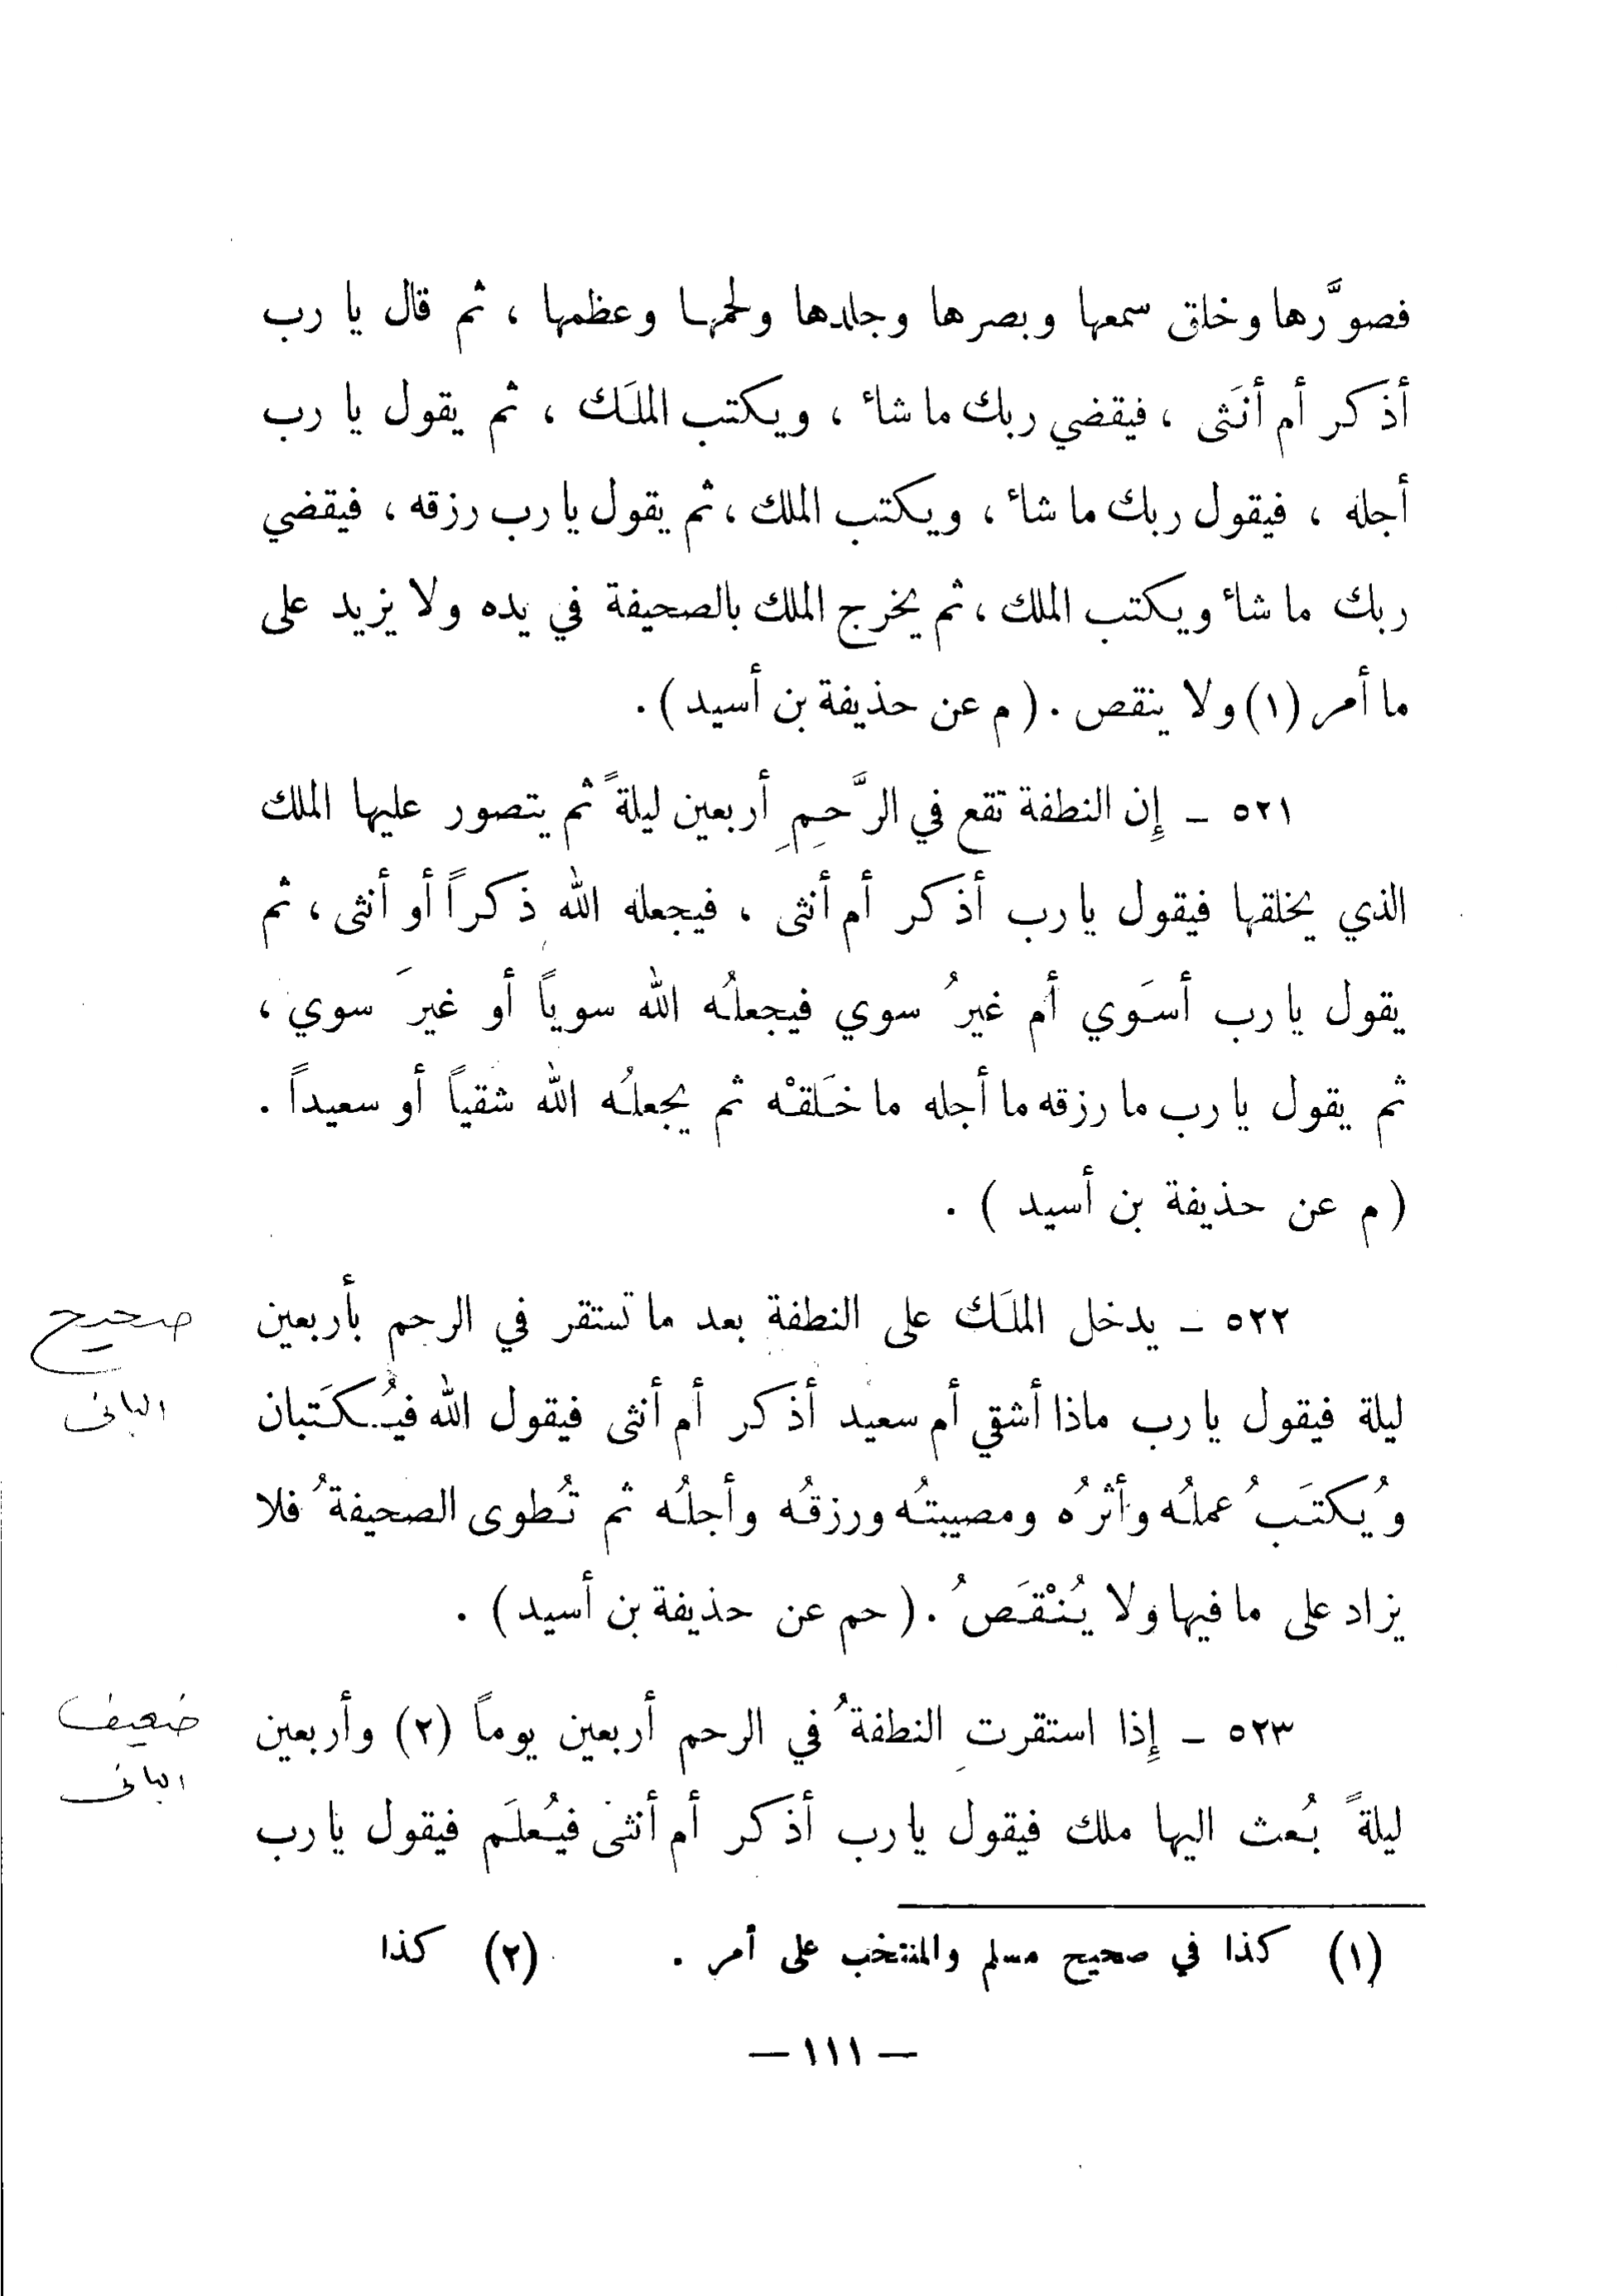 فصوَّرها وخلق سمعها وبصرها وجلدها ولحمها وعظمها ، ثم قال يا رب
أذكر أم أنَثى ، فيقضي ربك ما شاء ، ويكتب الملَك ، ثم يقول يا رب
أجله ، فيقول ربك ما شاء ، ويكتب الملك ، ثم يقول يا رب رزقه ، فيقضي
ربك ما شاء ويكتب الملك ، ثم يخرج الملك بالصحيفة في يده ولا يزيد على
ما أمر (١) ولا ينقص . ( م عن حذيفة بن أسيد ) .
٥٢١ ـ إِن النطفة تقع في الرَّحِمِ أربعين ليلةً ثم يتصور عليها الملك
الذي يخلقها فيقول يا رب أذكر أم أنثى ، فيجعله الله ذكراً أو أنثى ، ثم
يقول يا رب أسَوي أم غيرُ سوي فيجعلُه الله سوياً أو غيرَ سوي ،
ثم يقول يا رب ما رزقه ما أجله ما خَلَقْه ثم يجعلُه الله شقياً أو سعيداً .
( م عن حذيفة بن أسيد ) .
٥٢٢ ـ يدخل الملَك على النطفة بعد ما تستقر في الرحم بأربعين
صحيح
ليلة فيقول يا رب ماذا أشقي أم سعيد أذكر أم أنثى فيقول الله فيُكتَبان
البانى
ويُكتَبُ عملُه وأثرُه ومصيبتُه ورزقُه وأجلُه ثم تُطوى الصحيفةُ فلا
يزاد على ما فيها ولا يُنْقَصُ . ( حم عن حذيفة بن أسيد ) .
٥٢٣ ـ إِذا استقرتِ النطفةُ في الرحم أربعين يوماً (٢) وأربعين
ضعيف
البانى
ليلةً بُعث اليها ملك فيقول يا رب أذكر أم أنثى فيُعلَم فيقول يا رب
(١) كذا في صحيح مسلم والمنتخب على أمر . (٢) كذا
— ١١١ —